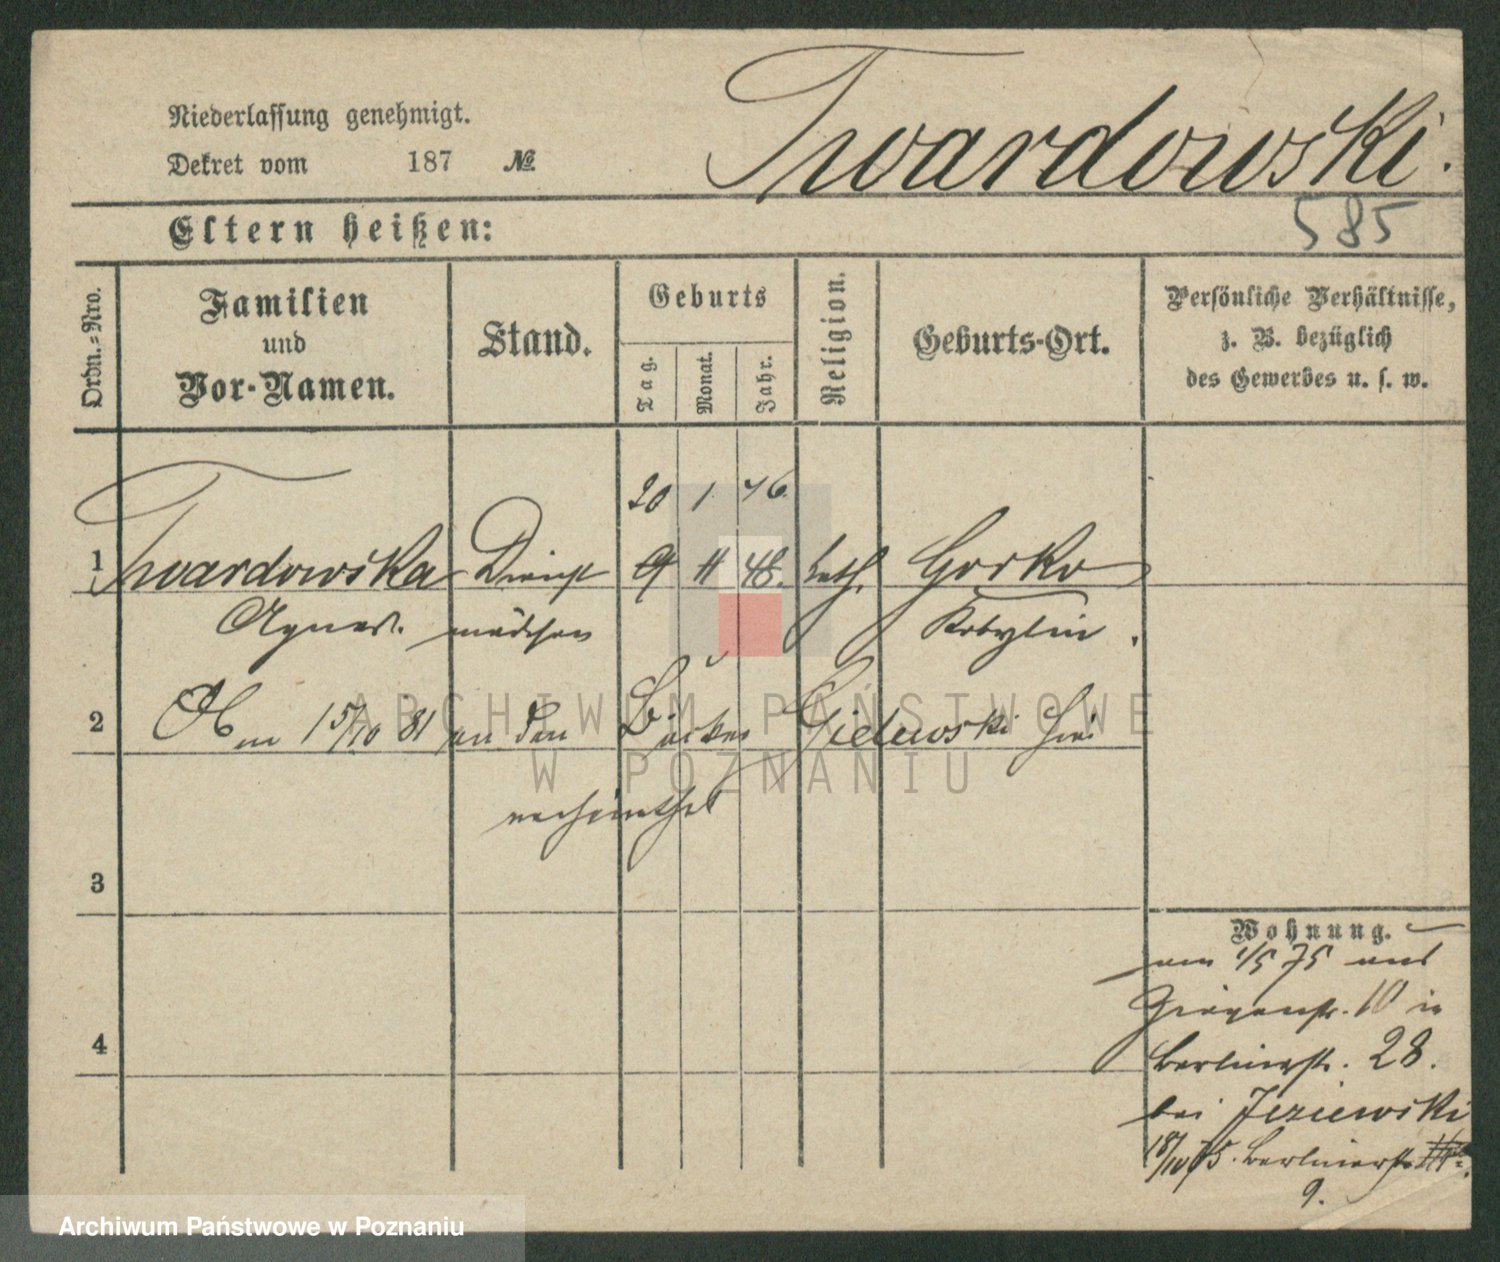 Niederlassung genehmigt.
Dekret vom 187 №
Twardowski.
585
Eltern heißen:
Ordn.-Nro.
Familien
und
Vor-Namen.
Stand.
Geburts
Tag.
Monat.
Jahr.
Religion.
Geburts-Ort.
Persönliche Verhältnisse,
z. B. bezüglich
des Gewerbes u. s. w.
20 1 46
1 Twardowska Dienst 9 11 48. kath. Gorko
Agnes. mädchen Kobylin.
2 15/10 81 an den Bäcker hier
verheirathet
3
4
Wohnung.
am 1/5 75 aus
10 in
Berlinerstr. 28.
bei Jeziewski
18/10 75. Berlinerstr.
9.
ARCHIWUM PAŃSTWOWE
W POZNANIU
Archiwum Państwowe w Poznaniu